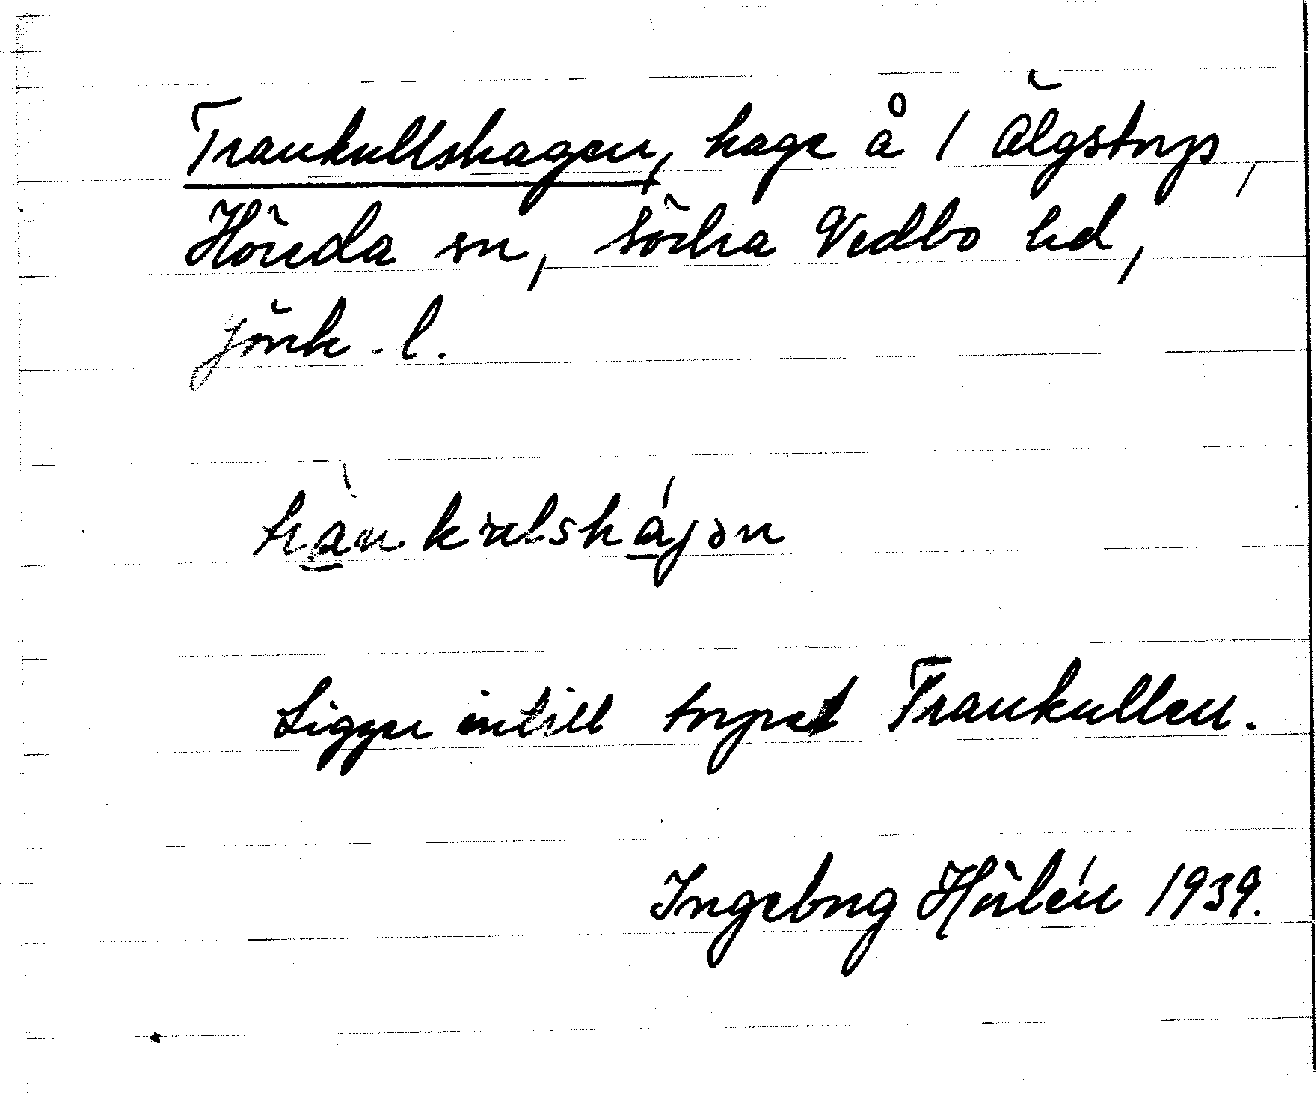 Trankullshagen, hage å 1 Älgstorp,
Höreda sn, Södra Vedbo hd,
Jönk. l.
Ligger intill torpet Trankullen.
Ingeborg Hörlén 1939.